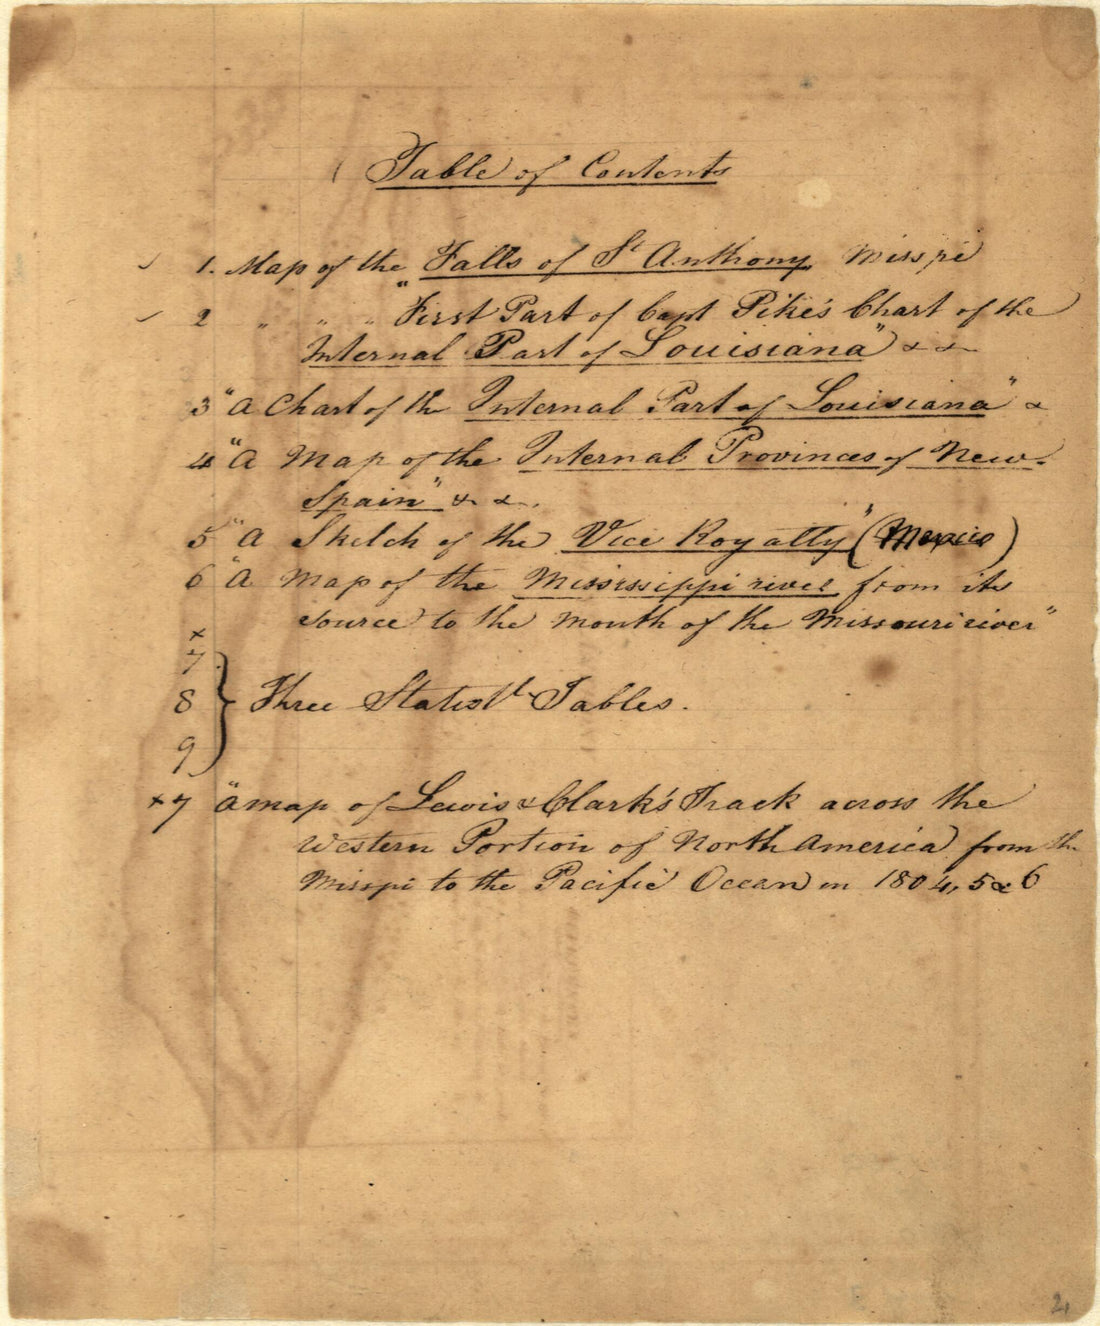 Table of Contents
1. Map of the Falls of St Anthony Misspi
2 " " " "First Part of Capt Pike's Chart of the
Internal Part of Louisiana" & &
3 "A Chart of the Internal Part of Louisiana" &
4 "A Map of the Internal Provinces of New
Spain" & &.
5 "A Sketch of the Vice Royalty" (Mexico)
6 "A Map of the Mississippi river from its
source to the mouth of the Missouri river"
x
7
8 } Three Statistl Tables.
9
x7 "a map of Lewis & Clark's Track across the
Western Portion of North America from the
Misspi to the Pacific Ocean in 1804, 5 & 6
2